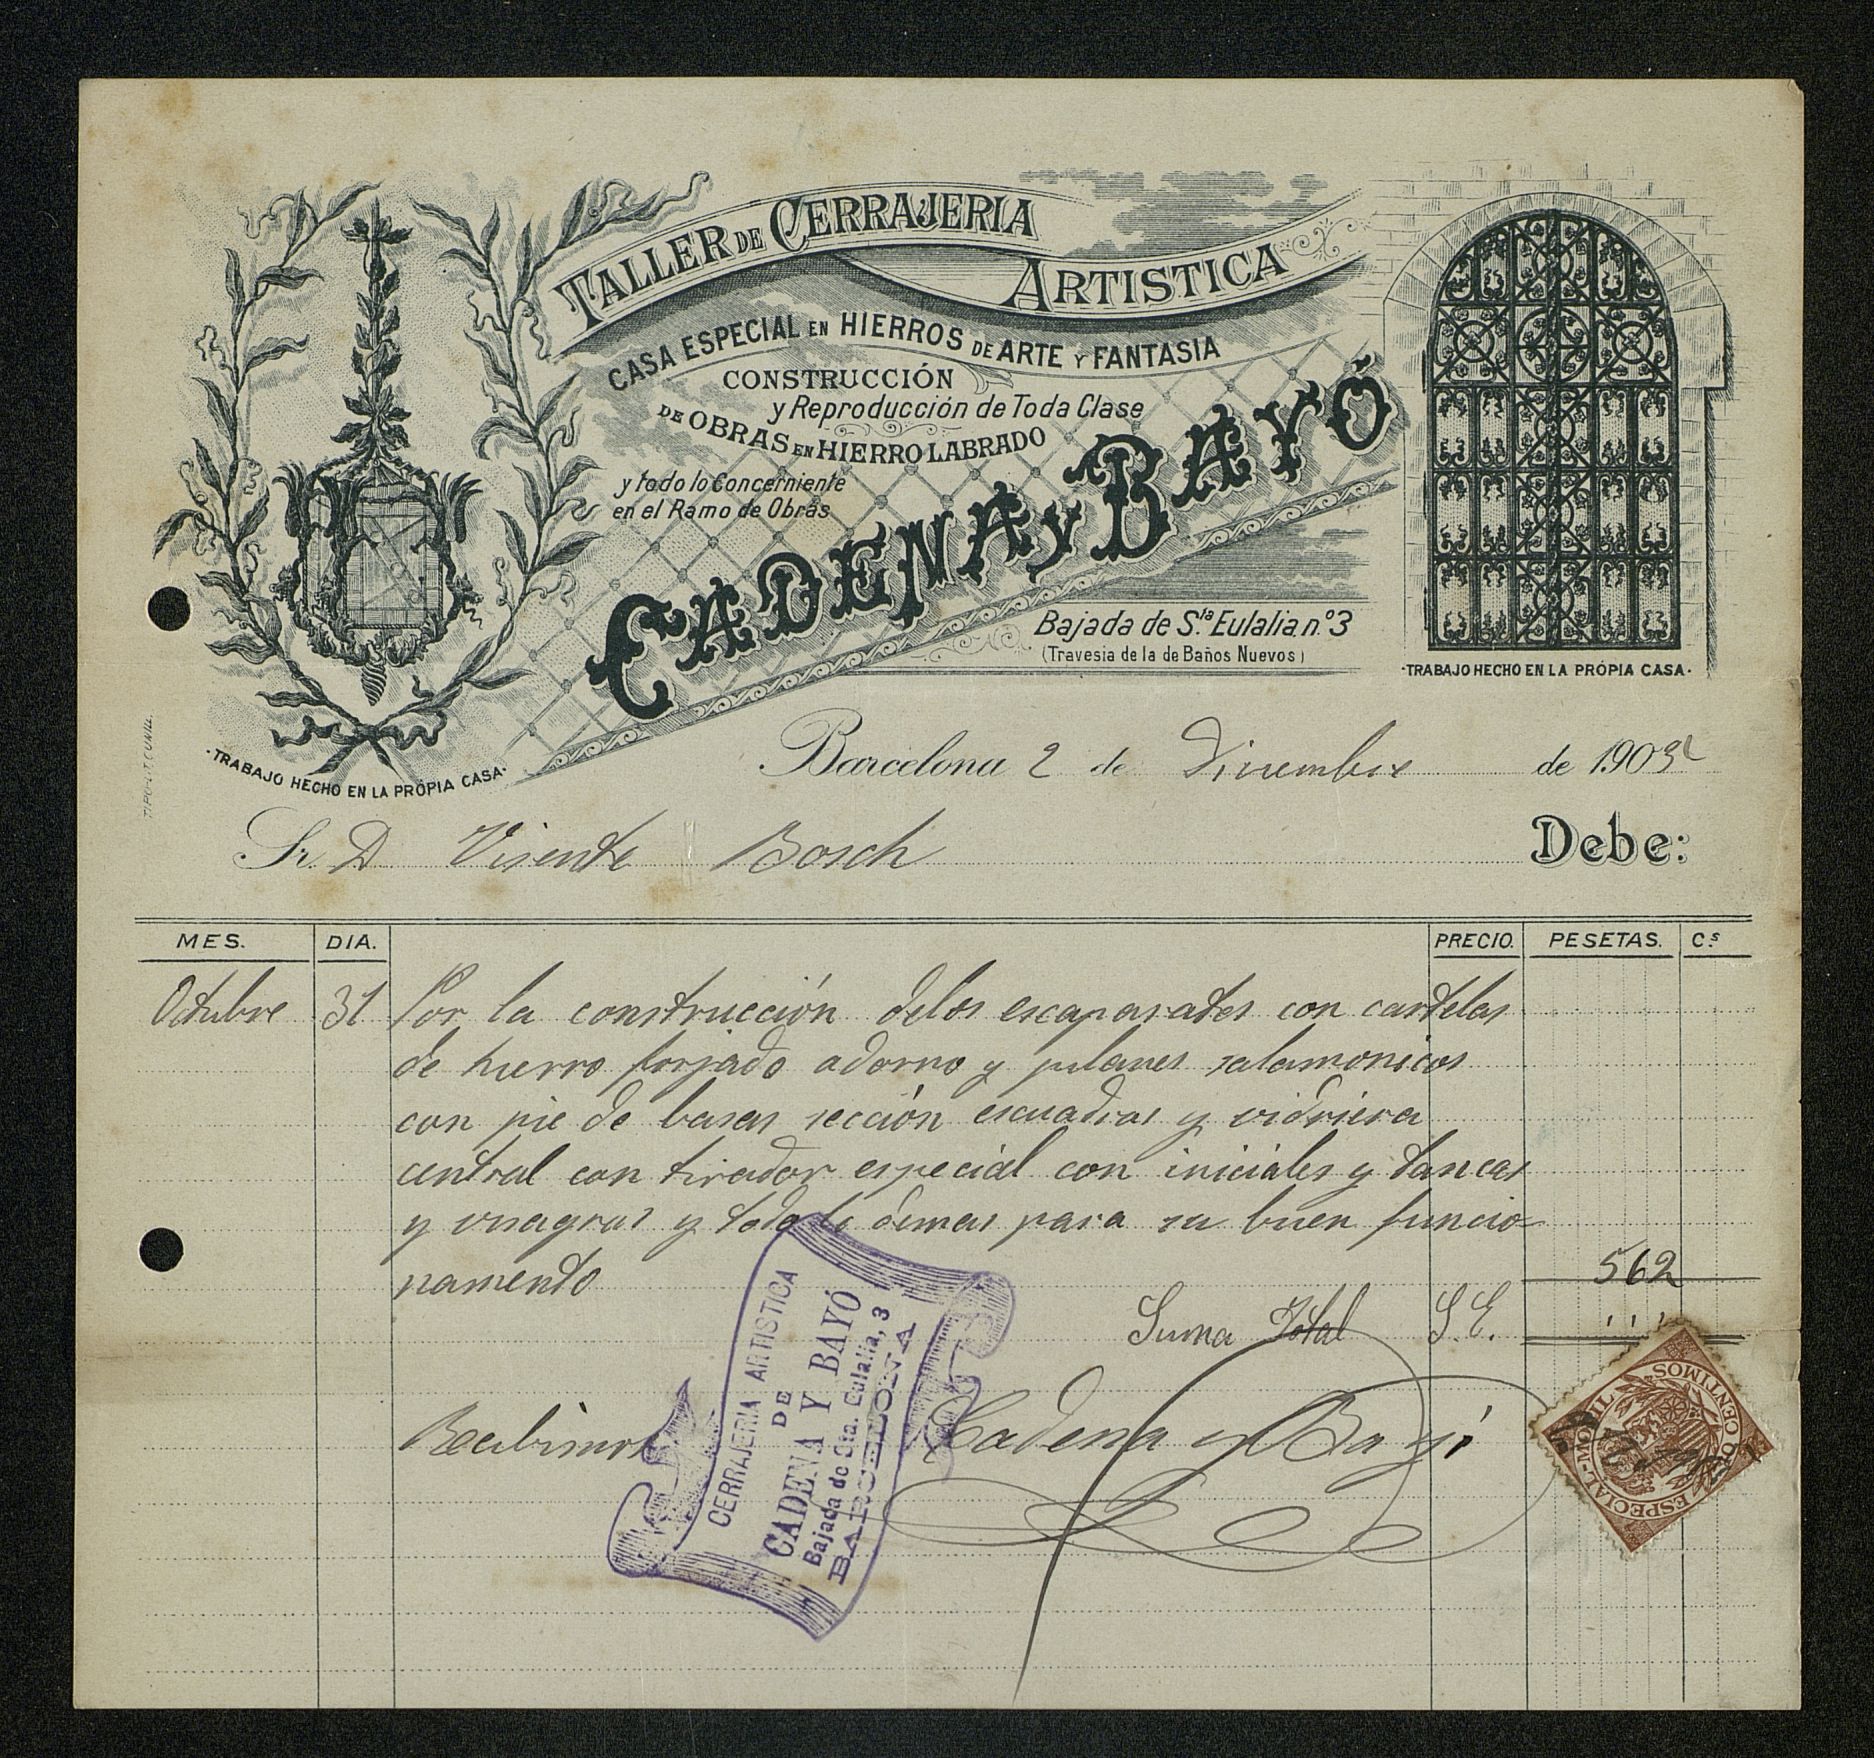 TALLER DE CERRAJERIA
ARTISTICA
CASA ESPECIAL EN HIERROS DE ARTE Y FANTASIA
CONSTRUCCIÓN
y Reproducción de Toda Clase
DE OBRAS EN HIERRO LABRADO
y todo lo Concerniente
en el Ramo de Obras
CADENA Y BAYÓ
Bajada de Sta. Eulalia n.º 3
(Travesia de la de Baños Nuevos)
·TRABAJO HECHO EN LA PRÓPIA CASA·
·TRABAJO HECHO EN LA PRÓPIA CASA·
Barcelona 2 de Diciembre de 190
Sr. D Visente Bosch Debe:
MES. DIA. PRECIO. PESETAS. Cs
Octubre 31 Por la construcción delos escaparates con cartelas
de hierro forjado adorno y pilanes salamonicos
con pie de basas sección escuadras y vidriera
central con tirador especial con iniciales y tancas
y visagras y todo lo demas para su buen funcio-
namento 562
Suma Total S.E.
Recibimos Cadena y Bayó
CERRAJERIA ARTISTICA
DE
CADENA Y BAYÓ
Bajada de Sta. Eulalia, 3
BARCELONA
ESPECIAL-MÓVIL
10 CENTIMOS